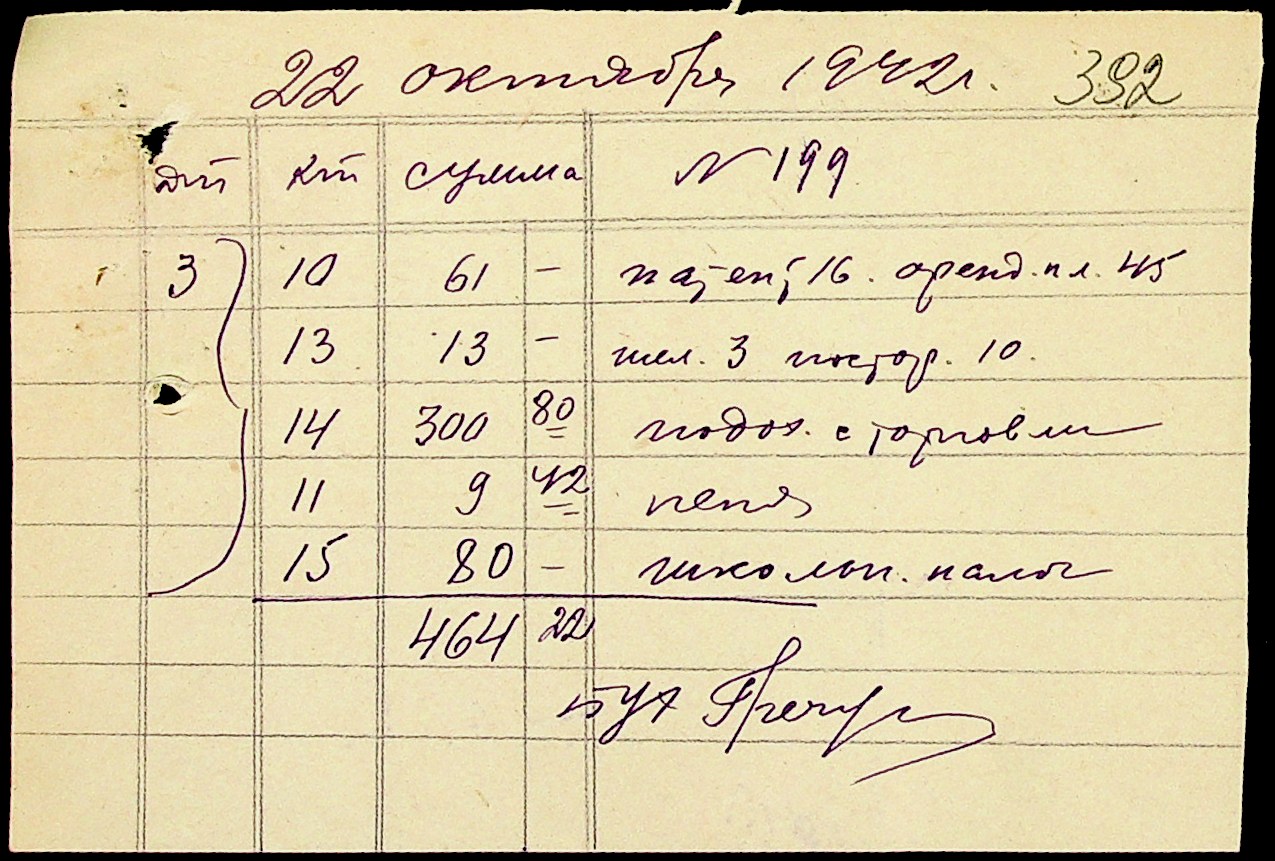 22 октября 1942 г. 392
дт кт сумма N 199
3 10 61 – патент 16. аренд. пл. 45
13 13 – 3 постор. 10.
14 300 80 подох. с торговли
11 9 42 пеня
15 80 – школьн. налог
464 22
бух